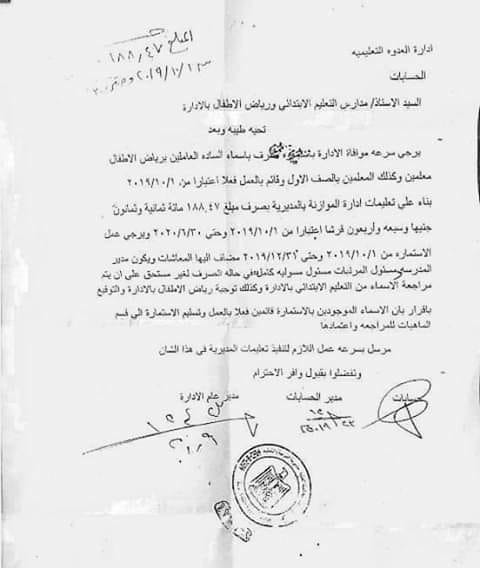 المبلغ ١٨٨,٤٧
ادارة العدوه التعليميه
الحسابات
السيد الاستاذ/ مدارس التعليم الابتدائي ورياض الاطفال بالادارة
تحيه طيبه وبعد
يرجي سرعه موافاة الادارة باستمارة صرف باسماء الساده العاملين برياض الاطفال
معلمين وكذلك المعلمين بالصف الاول وقائم بالعمل فعلا اعتبارا من ٢٠١٩/١٠/١
بناء علي تعليمات ادارة الموازنة بالمديرية بصرف مبلغ ١٨٨,٤٧ مائة ثمانية وثمانون
جنيها وسبعه وأربعون قرشا إعتبارا من ٢٠١٩/١٠/١ وحتي ٢٠٢٠/٦/٣٠ ويرجي عمل
الاستماره من ٢٠١٩/١٠/١ وحتي ٢٠١٩/١٢/٣١ مضاف اليها المعاشات ويكون مدير
المدرسه ومسئول المرتبات مسئول مسوليه كامله في حاله الصرف لغير مستحق علي ان يتم
مراجعة الاسماء من التعليم الابتدائي بالادارة وكذلك توجية رياض الاطفال بالادارة والتوقيع
باقرار بان الاسماء الموجودين بالاستمارة قائمين فعلا بالعمل وتسليم الاستمارة الي قسم
الماهيات للمراجعه واعتمادها
مرسل بسرعه عمل اللازم لتنفيذ تعليمات المديرية في هذا الشان
وتفضلوا بقبول وافر الاحترام
حسابات مدير الحسابات مدير عام الادارة